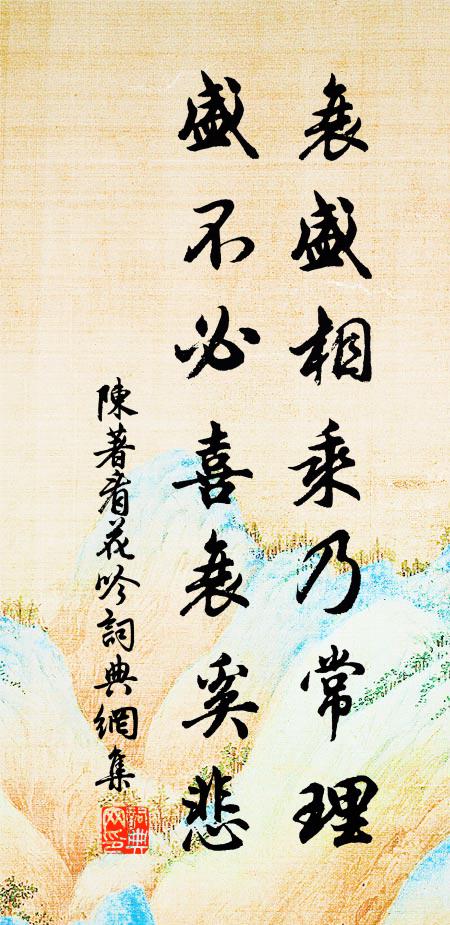 衰盛相乘乃常理
盛不必喜衰奚悲
陳著看花吟詞典網集
詞典網印